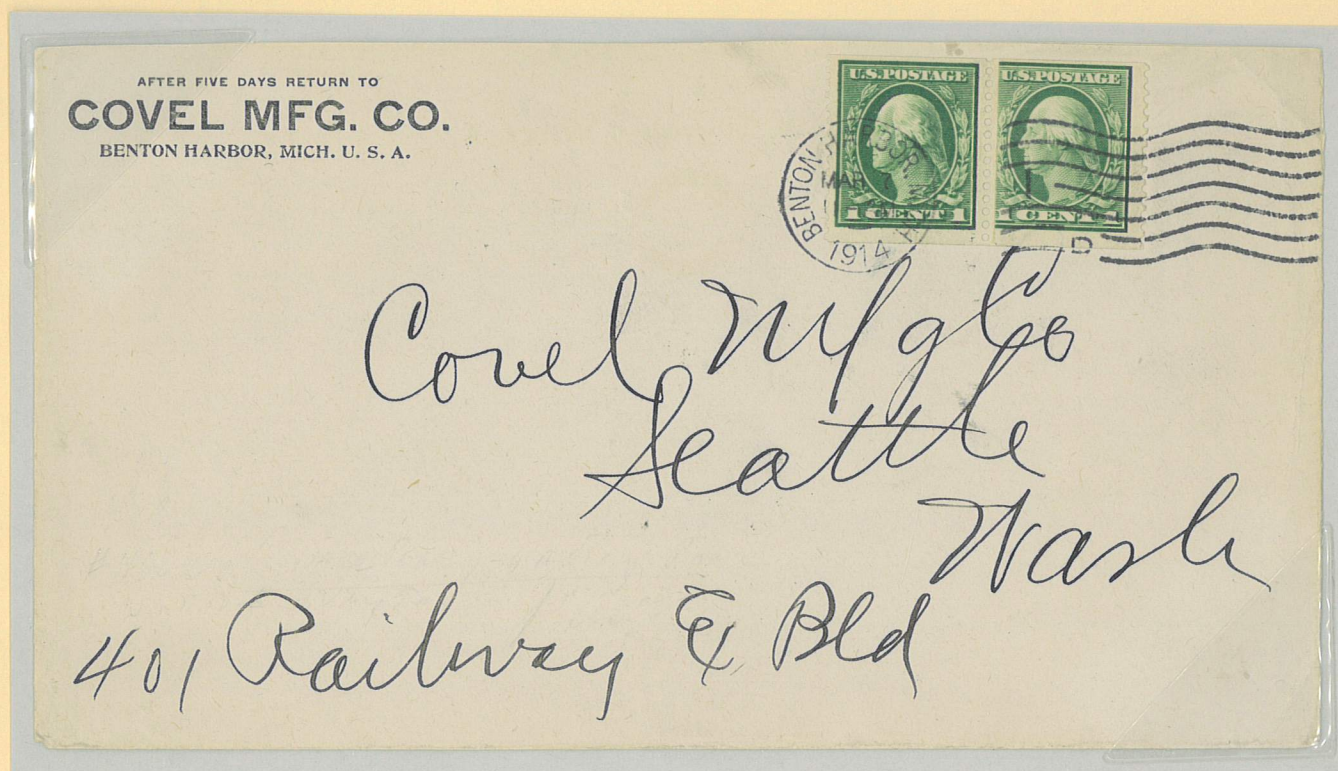 AFTER FIVE DAYS RETURN TO
COVEL MFG. CO.
BENTON HARBOR, MICH. U. S. A.
U.S. POSTAGE
1 CENT 1
U.S. POSTAGE
1 CENT 1
BENTON HARBOR, MICH
MAR
1914
1
D
Covel Mfg Co
Seattle
Wash
401 Railway Ex Bld